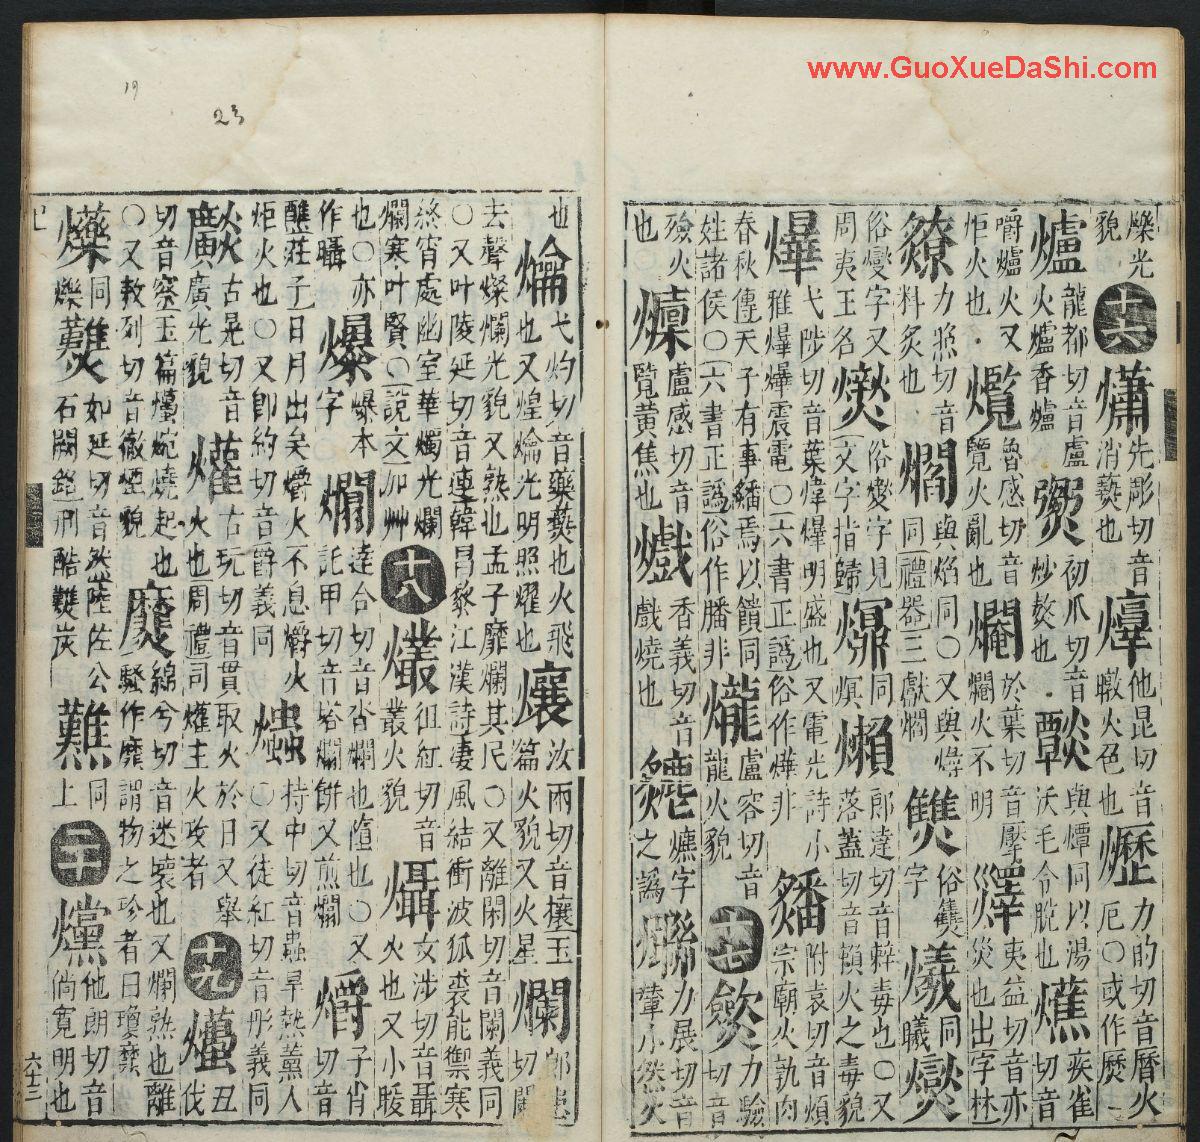 www.GuoXueDaShi.com
19
23
爍光貌 十六 先彫切音消爇也 他昆切音暾火色也 爏 力的切音曆火厄〇或作㷴
爐 龍都切音盧火爐香爐 初爪切音炒敖也 與燂同以湯沃毛令脫也 爑 疾雀切音
嚼爐火又炬火也 爦 魯感切音覽火亂也 於葉切音壓爓火不明 燡 夷益切音亦災也出字林
爎 力照切音料炙也 爓 與焰同〇又與燖同禮器三獻爓 俗雙字 爔 同曦 爕
俗燮字又周夷王名 俗燮字見文字指歸 同熐 郎達切音辢毒也〇又落蓋切音賴火之毒貌
爗 弋陟切音葉煒爗明盛也又電光詩小雅爗爗震電〇六書正譌俗作燁非 附袁切音煩宗廟火孰肉
春秋傳天子有事繙焉以饋同姓諸侯〇六書正譌俗作膰非 爖 盧容切音龍火貌 十七 力驗切音
殮火也 盧感切音覽黃焦也 香義切音戲燒也 爊字之譌 力展切音輦小然火
也 爚 弋灼切音藥爇也火飛也又煌爚光明照燿也 爙 汝兩切音攘玉篇火貌又火星 爛 郎患切闌
去聲燦爛光貌又熟也孟子靡爛其民〇又離閑切音闌義同
〇又叶陵延切音連韓昌黎江漢詩淒風結衝波狐裘能禦寒
終宵處幽室華燭光爛爛寒叶賢〇說文加艸 十八 徂紅切音叢火貌 㸎 女涉切音聶火也又小暖
也〇亦作 爆本字 達合切音沓爛也墮也〇又託甲切音塔爛餅又煎爛 爝 子肖切音
醮莊子日月出矣爝火不息爝火炬火也〇又卽約切音爵義同 爞 持中切音蟲旱熱薰人〇又徒紅切音彤義同
古晃切音廣光貌 爟 古玩切音貫取火於日又舉火也周禮司爟主火攻者 十九 丑伐
切音玉篇燒起也〇又敕列切音徹煙貌 綿兮切音迷壞也又爛熟也離騷作靡謂物之珍者曰瓊
同爍 如延切音然崔佐公石闕銘刑酷炭 同上 二十 爣 他朗切音倘寬明也
六十三